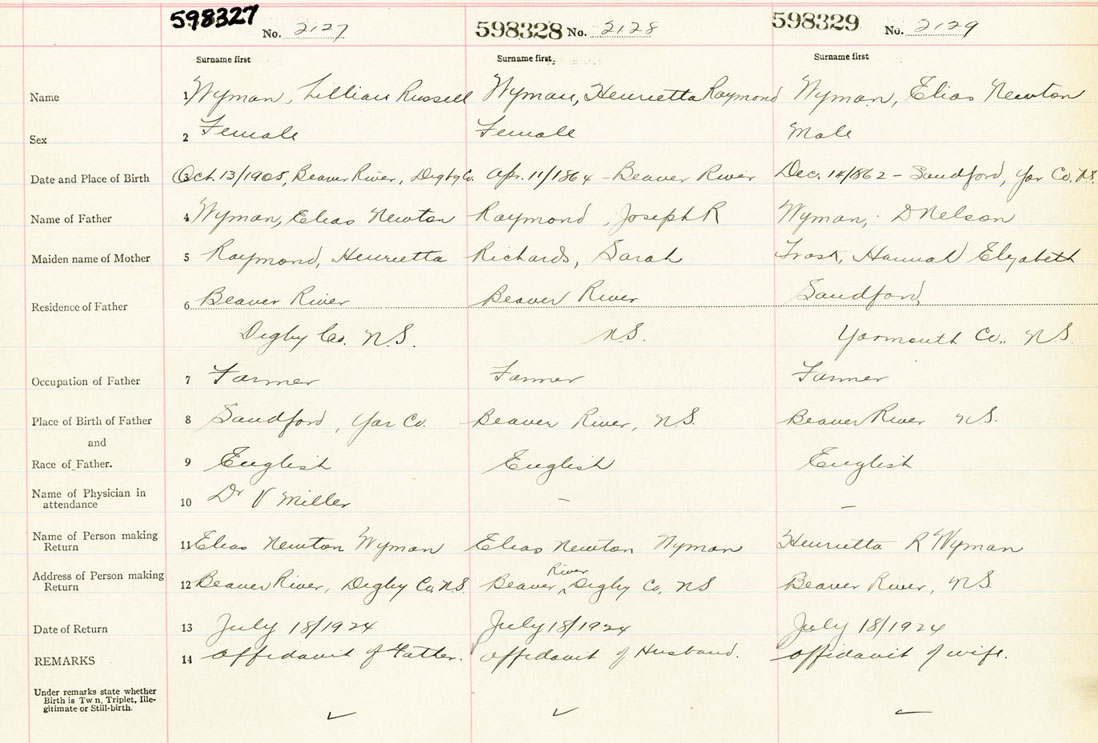 598327 No. 2127 598328 No. 2128 598329 No. 2129
Surname first Surname first. Surname first
Name 1 Wyman, Lillian Russell Wyman, Henrietta Raymond Wyman, Elias Newton
Sex 2 Female Female Male
Date and Place of Birth 3 Oct. 13/1905, Beaver River, Digby Co. Apr. 11/1864 - Beaver River Dec. 14/1862 - Sandford, Yar Co. N.S.
Name of Father 4 Wyman, Elias Newton Raymond, Joseph R Wyman, D Nelson
Maiden name of Mother 5 Raymond, Henrietta Richards, Sarah Trask, Hannah Elizabeth
Residence of Father 6 Beaver River Beaver River Sandford,
Digby Co. N.S. N.S. Yarmouth Co., N S
Occupation of Father 7 Farmer Farmer Farmer
Place of Birth of Father 8 Sandford, Yar Co. Beaver River, N.S. Beaver River N.S.
and
Race of Father. 9 English English English
Name of Physician in
attendance 10 Dr V Miller - -
Name of Person making
Return 11 Elias Newton Wyman Elias Newton Wyman Henrietta R Wyman
Address of Person making
Return 12 Beaver River, Digby Co, N.S. Beaver River, Digby Co, NS Beaver River, N.S.
Date of Return 13 July 18/1924 July 18/1924 July 18/1924
REMARKS 14 Affidavit of Father. Affidavit of Husband. Affidavit of wife.
Under remarks state whether
Birth is Tw n, Triplet, Ille-
gitimate or Still-birth.